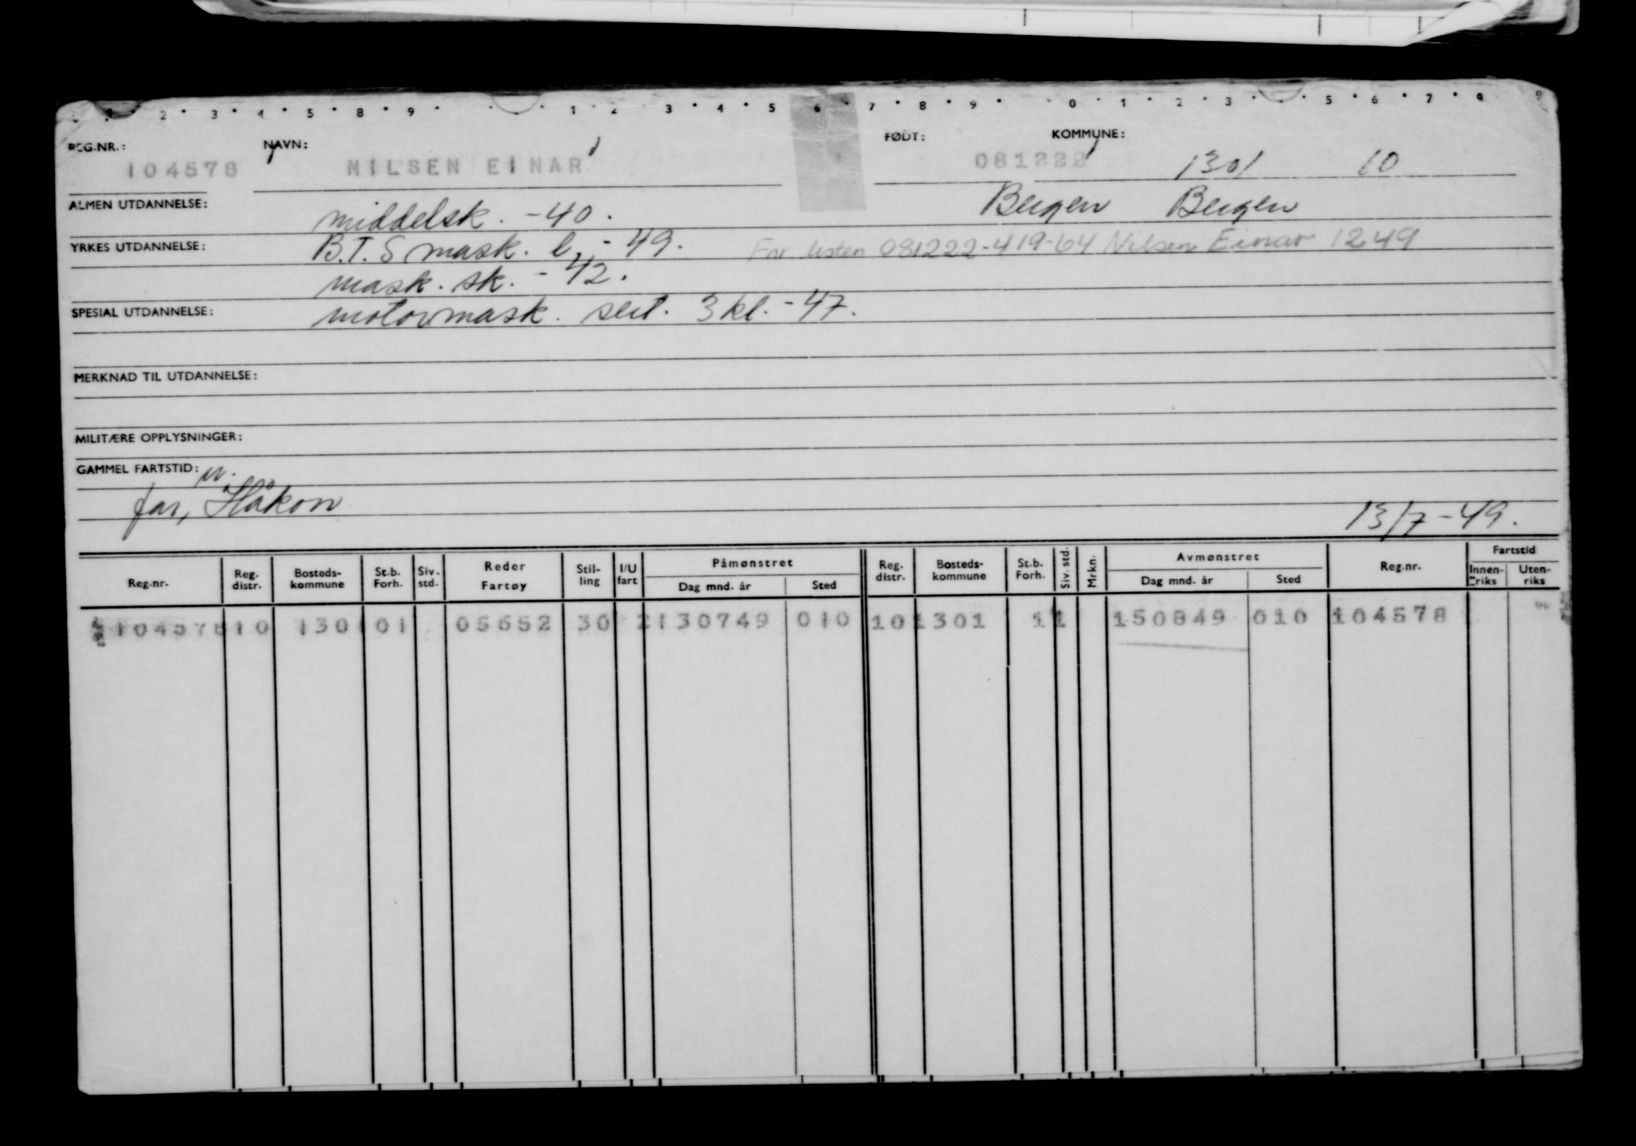 REG.NR.: NAVN: FØDT: KOMMUNE:
104578 NILSEN EINAR 081222 1301 10
ALMEN UTDANNELSE: middelsk. -40. Bergen Bergen
YRKES UTDANNELSE: B.T.S mask. l. - 49. For. listen 081222-419-64 Nilsen Einar 1249
mask. sk. - 42.
SPESIAL UTDANNELSE: motormask. sert. 3 kl. - 47.
MERKNAD TIL UTDANNELSE:
MILITÆRE OPPLYSNINGER:
GAMMEL FARTSTID:
far, Håkon 13/7-49.
Reg.nr. Reg. distr. Bosteds-kommune St.b. Forh. Siv. std. Reder Fartøy Stil-ling I/U fart Påmønstret Dag mnd. år Sted Reg. distr. Bosteds-kommune St.b. Forh. Siv. std. Mrkn. Avmønstret Dag mnd. år Sted Reg.nr. Fartstid Innen-riks Uten-riks
104578 10 1301 01 05652 30 2 130749 010 10 1301 1 1 150849 010 104578